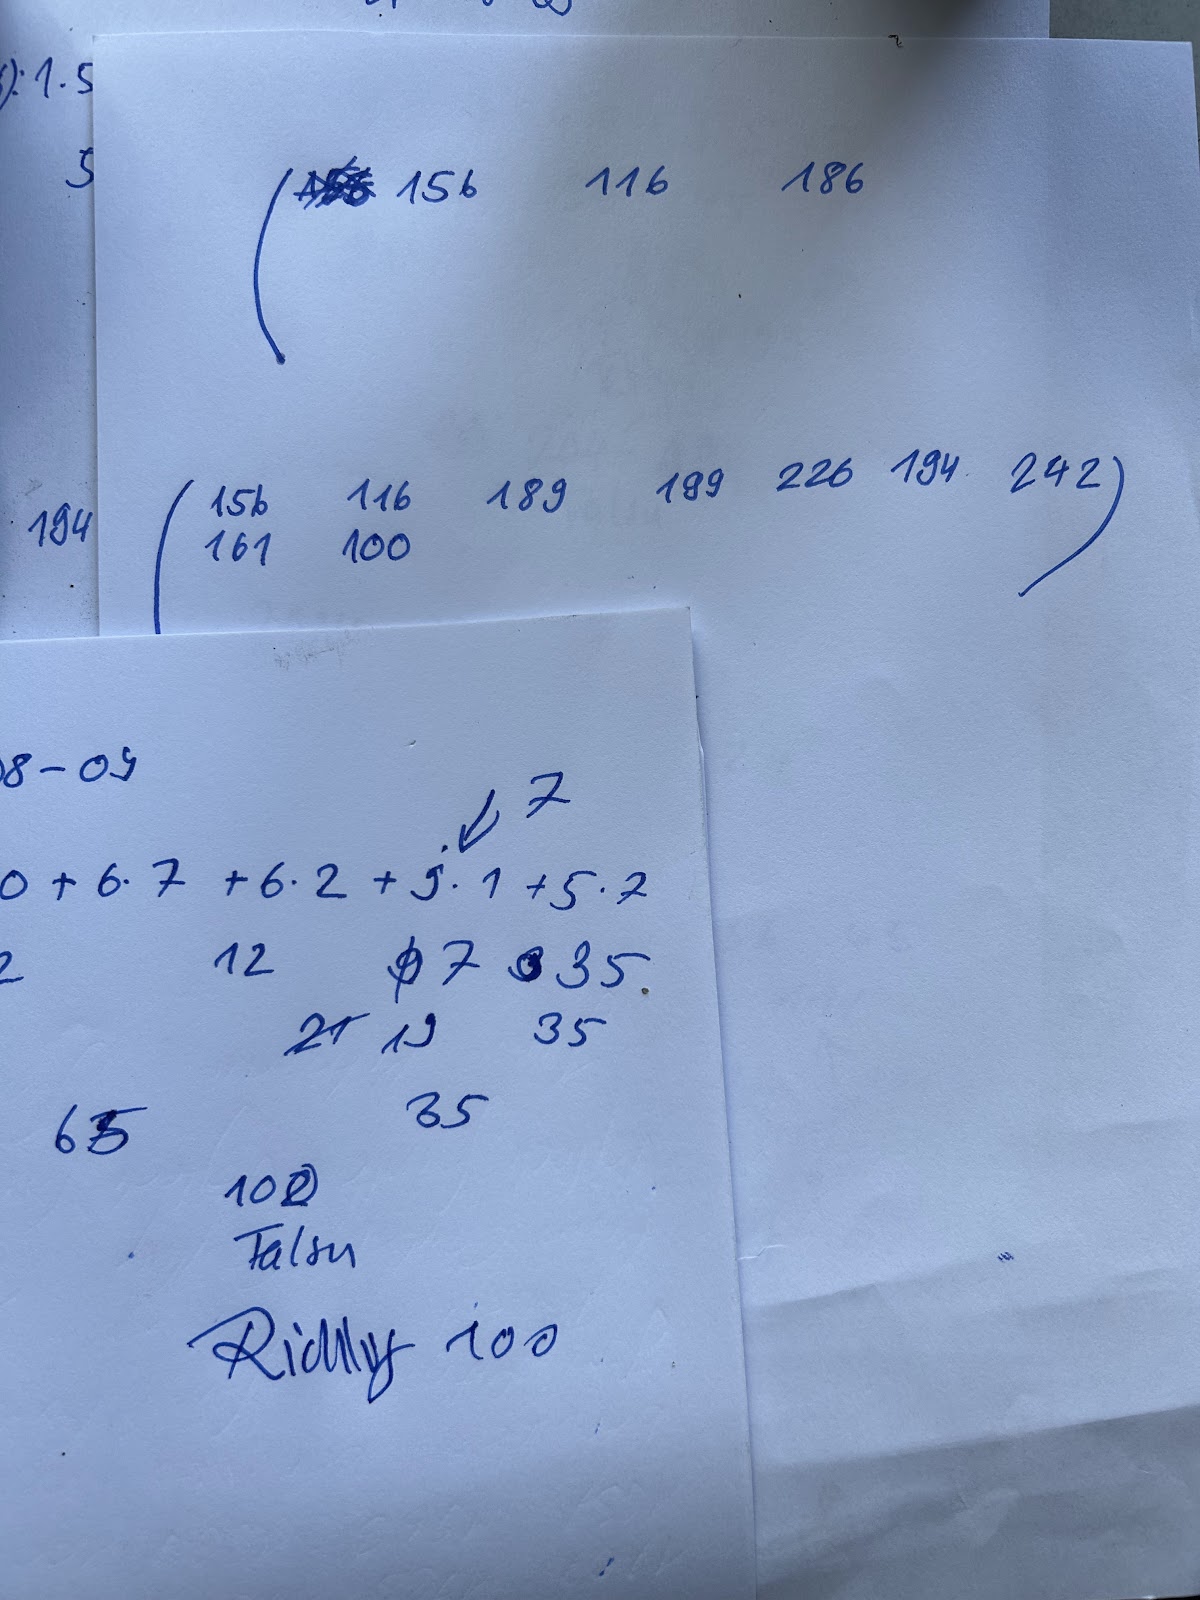 ):1.5
5
156 116 186
194
156 116 189 199 226 194 242
161 100
08-09
7
0 + 6.7 + 6.2 + 5.1 + 5.7
2 12 7 35
21 19 35
65 35
102
Falsu
Richtig 100